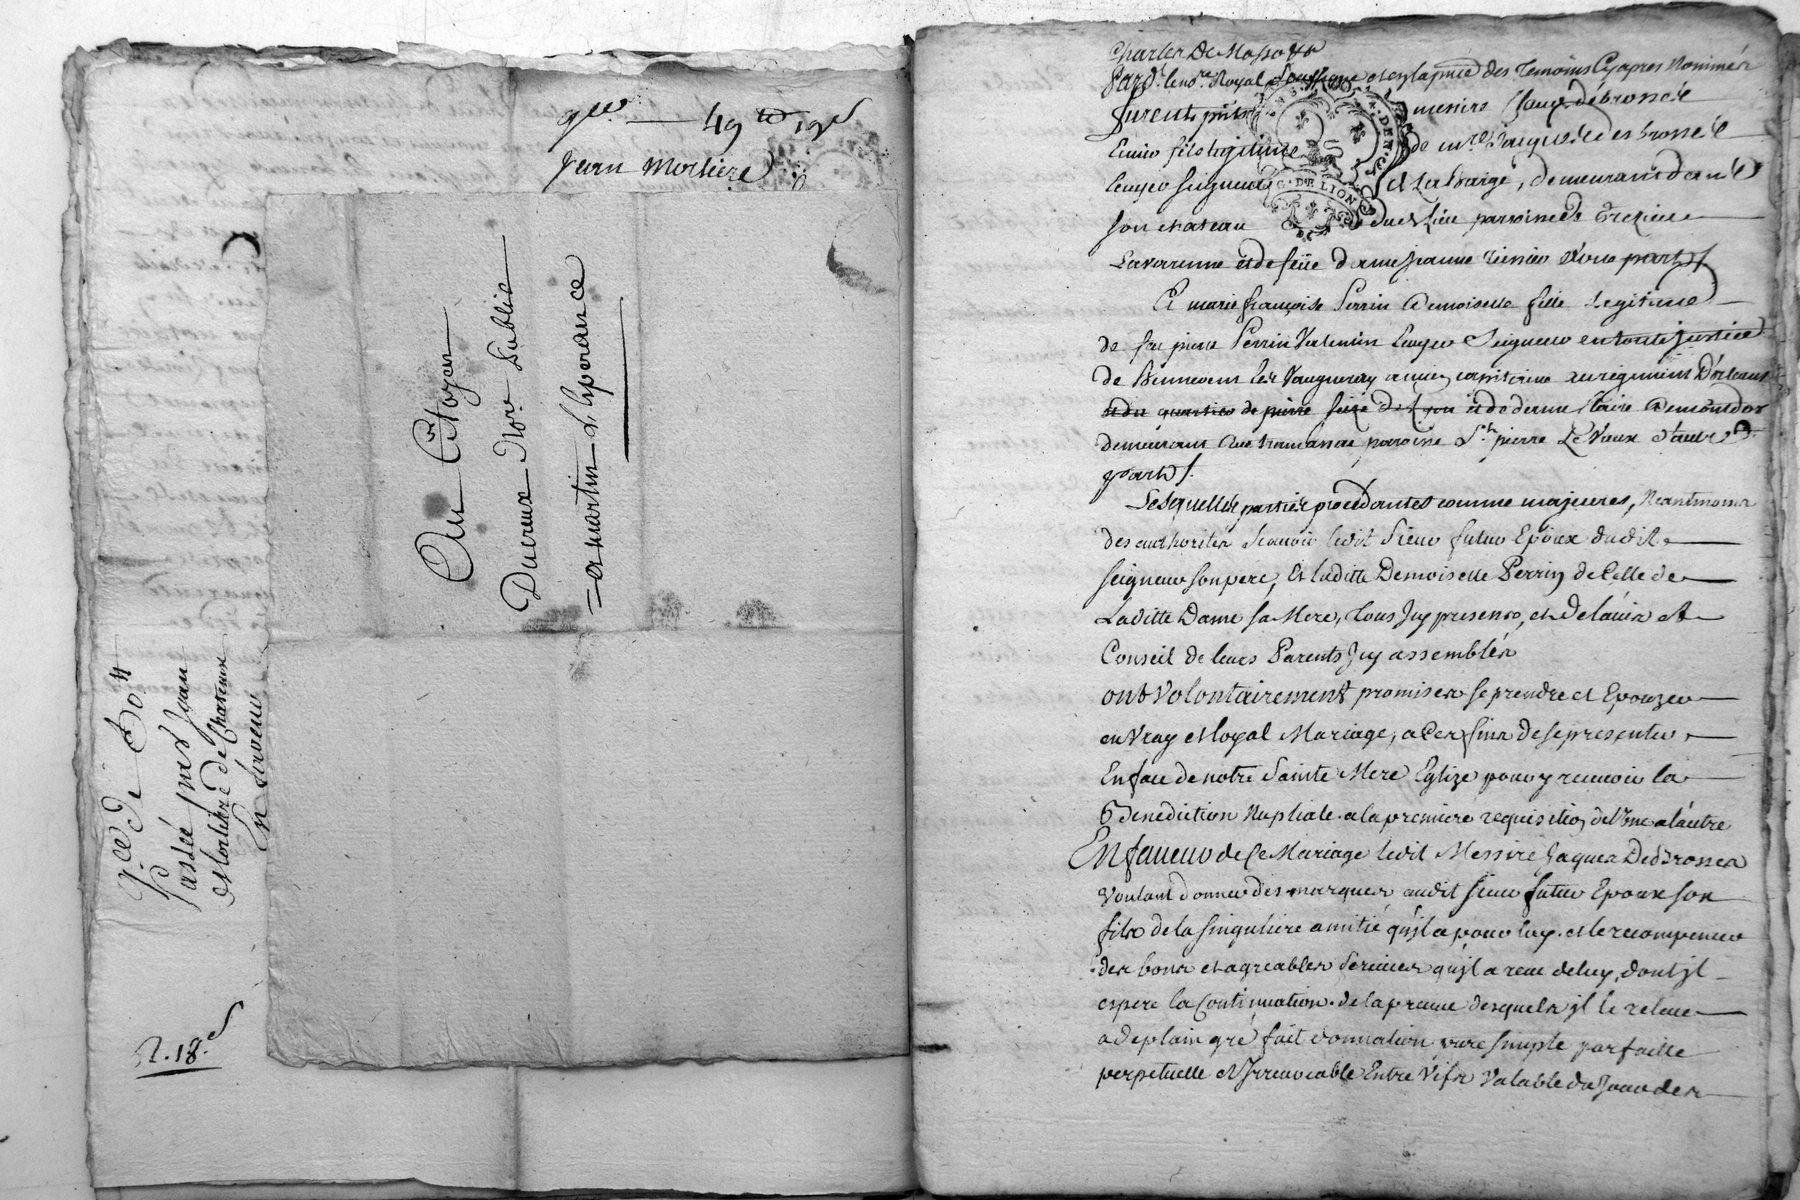 qce — 49 lt 19 s
Jean Morliere
Au Citoyen
Ducreux Nore Public
a martin L'Esperance
qce de 50 lt
Passée par Jean
Morliere de Chareneux
En faveur
R. 18 s
Charles De Masso
Pardt. le nore Royal Soussigné et en la pnce des Temoins Cy apres Nommés
furent pnts messire
Ecuier fils legitime de mre Jacques des brosses
Ecuyer Seigneur et La barge, demeurant dans
son chateau du lieu parroisse de
Lavarenne et de feüe dame Jeanne d'Une part
Et marie françoise Perrin Demoiselle fille Legitime
de feu pierre Perrin Valentin Ecuyer Seigneur en toute Justice
de Bennevent les Vaugneray ancien capitaine au regiment D'orleans
et du quartier de pierre seize de Lyon et de dame Claire Demontdor
demeurant Rue tramassac parroisse St. pierre Le Vieux d'autre
part.
Lesquelles parties procedantes comme majeures, Neantmoins
des authorités scavoir ledit Sieur futur Epoux dudit
seigneur son pere, Et laditte Demoiselle Perrin de Celle de
Laditte Dame sa Mere, Tous Icy presens, et de l'avis et
Conseil de leurs Parents Icy assemblés
ont Volontairement promis se prendre et Epouzer
en Vray et loyal Mariage, a Ces fins de se presenter
En face de notre Sainte Mere Eglize pour y recevoir la
Benediction Nuptiale a la premiere requisition de l'une a l'autre
En faveur de Ce Mariage ledit Messire Jaques Desbrosses
Voulant donner des marques audit sieur futur Epoux son
fils de la singuliere amitié qu'il a pour luy et le recompenser
des bons et agreables services qu'il a reçu de luy, dont il
espere la Continuation de la preuve desquels il le releve
a de plain gré fait donnation pure simple parfaitte
perpetuelle et Irrevocable Entre Vifs Valable